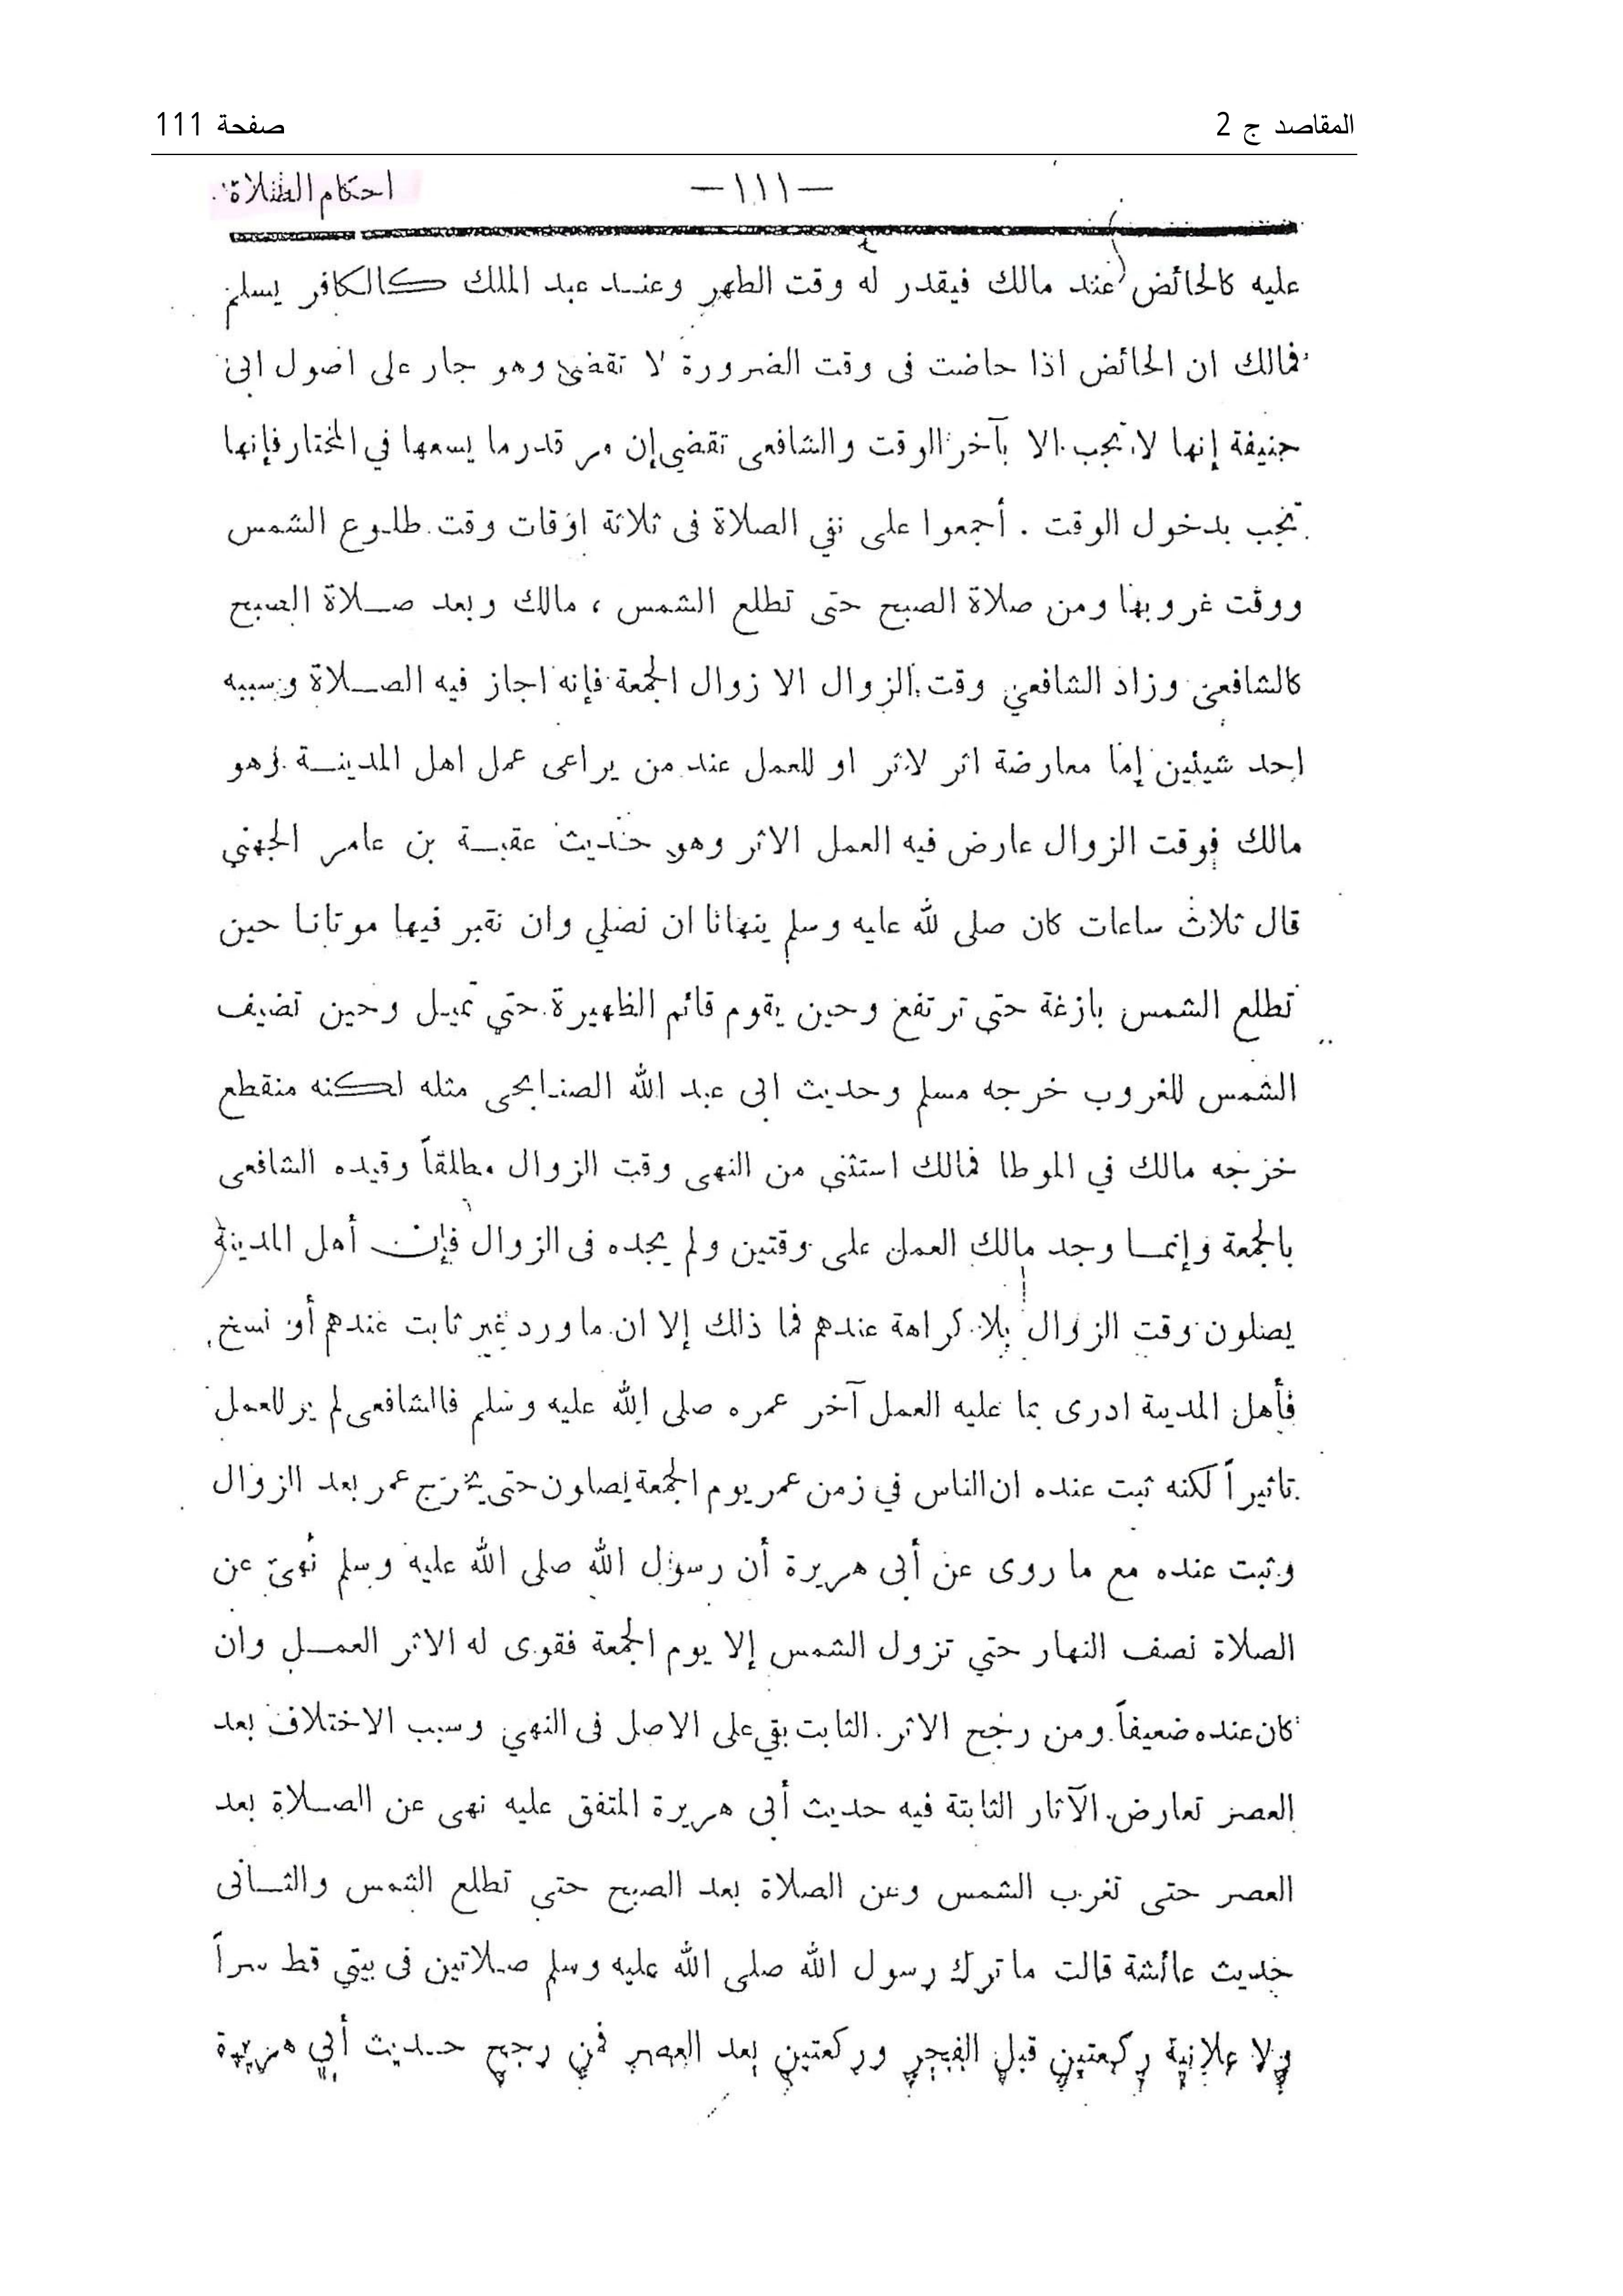 المقاصد ج 2
صفحة 111
احكام الصلاة
—١١١—
عليه كالحائض عند مالك فيقدر له وقت الطهر وعنـد عبد الملك كالكافر يسلم
فمالك ان الحائض اذا حاضت فى وقت الضرورة لا تقضى وهو جار على اصول ابى
حنيفة إنها لا تجب الا بآخر الوقت والشافعى تقضي إن مر قدر ما يسعها في المختار فإنها
تجب بدخول الوقت . أجمعوا على نفي الصلاة فى ثلاثة اوقات وقت طلـوع الشمس
ووقت غروبها ومن صلاة الصبح حتى تطلع الشمس ، مالك وبعد صـلاة الصبح
كالشافعى وزاد الشافعي وقت الزوال الا زوال الجمعة فإنه اجاز فيه الصـلاة وسببه
احد شيئين إما معارضة اثر لاثر او للعمل عند من يراعى عمل اهل المدينـة وهو
مالك فوقت الزوال عارض فيه العمل الاثر وهو حديث عقبـة بن عامر الجهني
قال ثلاث ساعات كان صلى لله عليه وسلم ينهانا ان نصلي وان نقبر فيها موتانا حين
تطلع الشمس بازغة حتى ترتفع وحين يقوم قائم الظهيرة حتي تميـل وحين تضيف
الشمس للغروب خرجه مسلم وحديث ابى عبد الله الصنابحى مثله لكنه منقطع
خرجه مالك في الموطا فمالك استثنى من النهى وقت الزوال مطلقاً وقيده الشافعى
بالجمعة وإنمـا وجد مالك العمل على وقتين ولم يجده فى الزوال فإن أهل المدينة
يصلون وقت الزوال بلا كراهة عندهم فما ذلك إلا ان ما ورد غير ثابت عندهم أو نسخ
فأهل المدينة ادرى بما عليه العمل آخر عمره صلى الله عليه وسلم فالشافعى لم ير للعمل
تاثيراً لكنه ثبت عنده ان الناس في زمن عمر يوم الجمعة يصلون حتى يخرج عمر بعد الزوال
وثبت عنده مع ما روى عن أبى هريرة أن رسول الله صلى الله عليه وسلم نهى عن
الصلاة نصف النهار حتي تزول الشمس إلا يوم الجمعة فقوى له الاثر العمـل وان
كان عنده ضعيفاً ومن رجح الاثر الثابت بقي على الاصل فى النهي وسبب الاختلاف بعد
العصر تعارض الآثار الثابتة فيه حديث أبى هريرة المتفق عليه نهى عن الصـلاة بعد
العصر حتى تغرب الشمس وعن الصلاة بعد الصبح حتي تطلع الشمس والثـانى
حديث عائشة قالت ما ترك رسول الله صلى الله عليه وسلم صلاتين فى بيتي قط سراً
ولا علانية ركعتين قبل الفجر وركعتين بعد العصر فمن رجح حـديث أبي هريرة